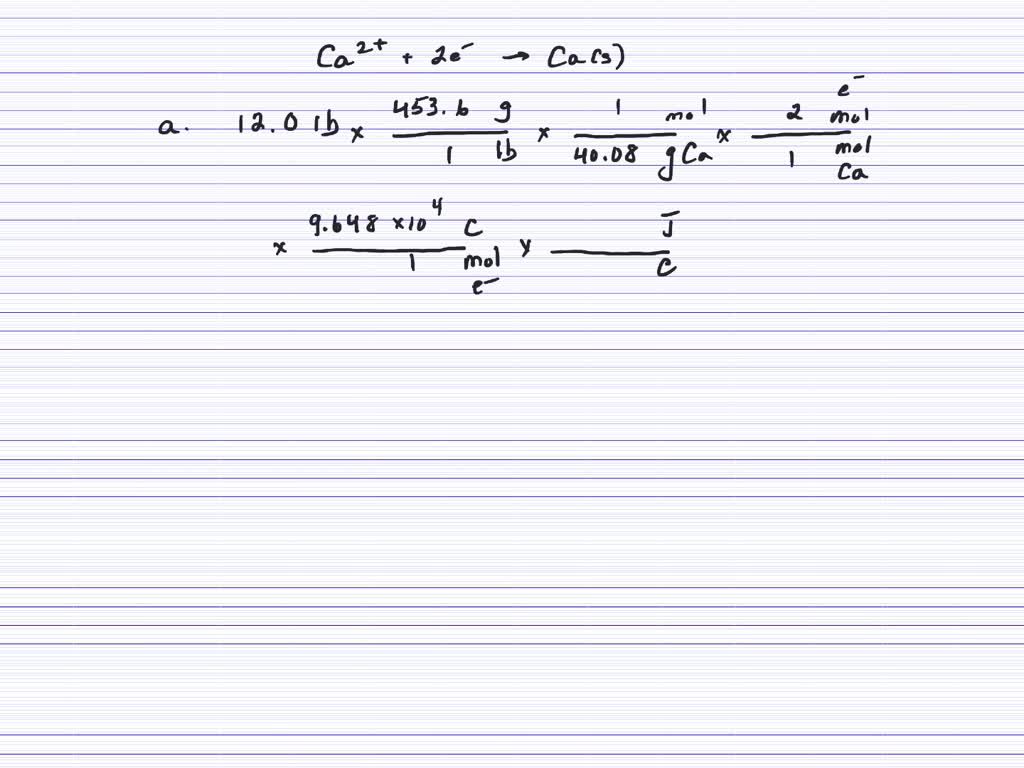 Ca²⁺ + 2e⁻ → Ca(s)
a. 12.0 lb × 453.6 g / 1 lb × 1 mol / 40.08 g Ca × 2 mol e⁻ / 1 mol Ca
× 9.648 ×10⁴ C / 1 mol e⁻ × J / C